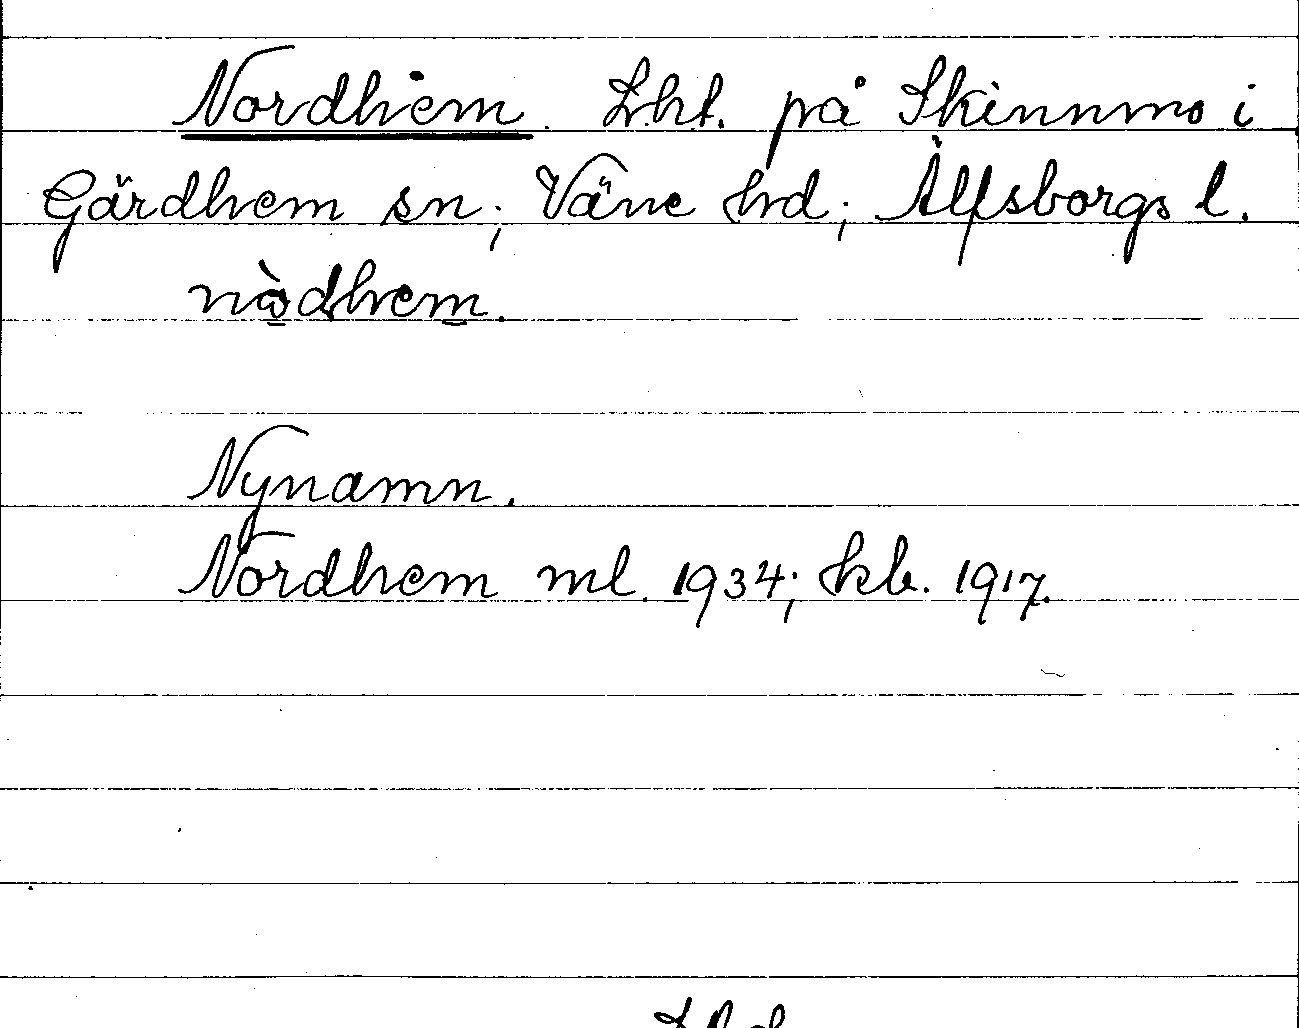 Nordhem. Lht. på Skinnmo i
Gärdhem sn; Väne hrd; Älfsborgs l.
nòdhem.
Nynamn.
Nordhem ml. 1934; kb. 1917.